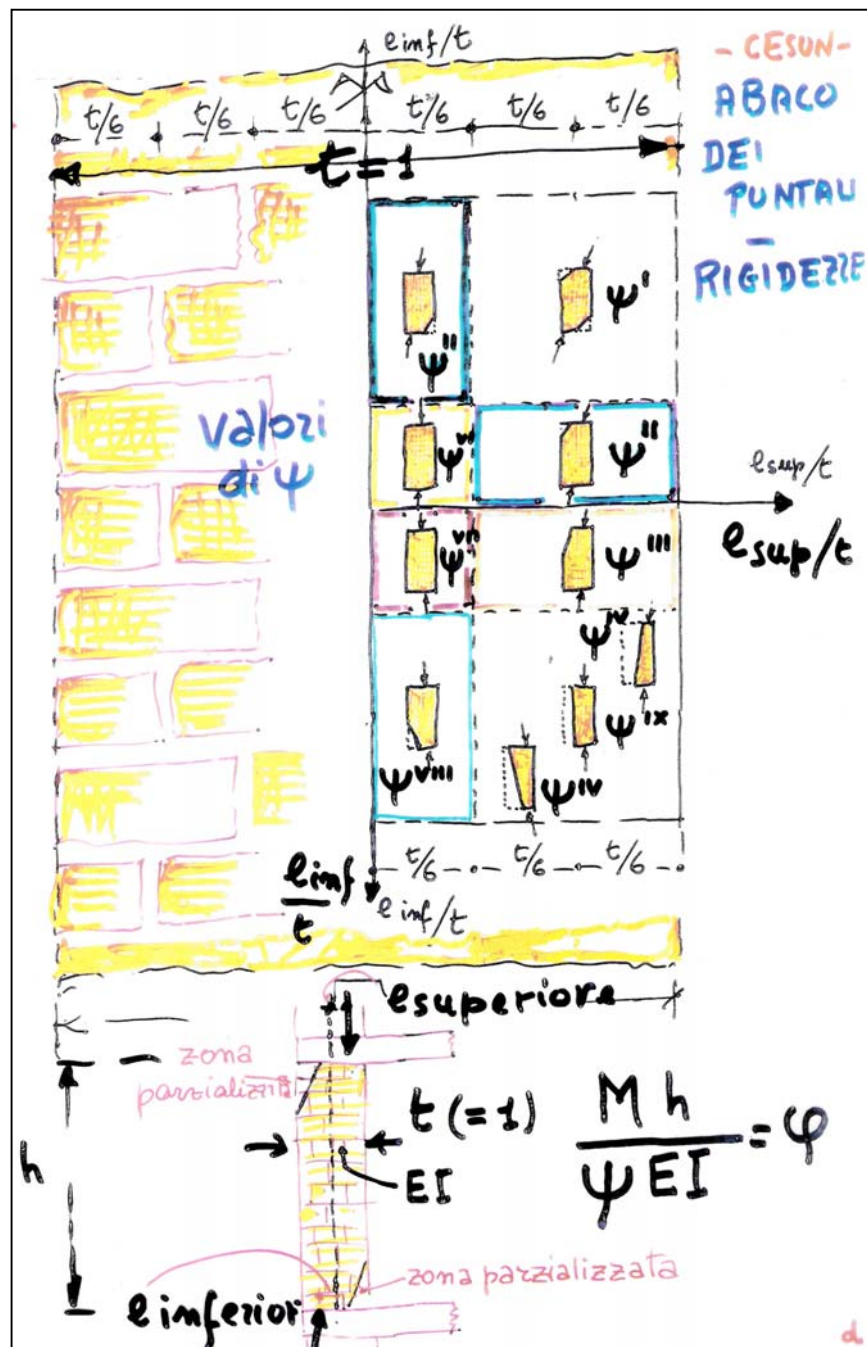 e inf/t
- CESUN-
ABACO
DEI
PUNTALI
-
RIGIDEZZE
t/6 t/6 t/6 t/6 t/6 t/6
t=1
ψ^I
ψ^II
valori
di ψ
ψ^VI
ψ^II
e sup/t
e sup/t
ψ^VII
ψ^III
ψ^IV
ψ^IX
ψ^VIII
ψ^IV
t/6 t/6 t/6
e inf
t
e inf/t
e superiore
zona
parzializzata
h
t (=1)
M h
ψ EI
= φ
EI
zona parzializzata
e inferior
d